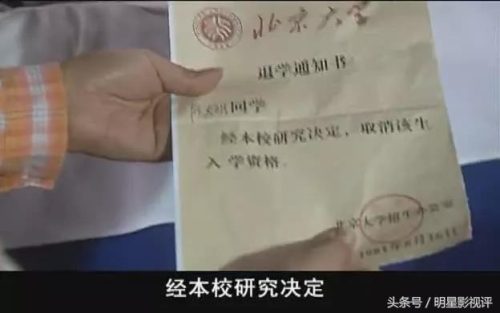 北京大学
退学通知书
同学
经本校研究决定，取消该生
入学资格.
北京大学招生办公室
经本校研究决定
头条号 / 明星影视评